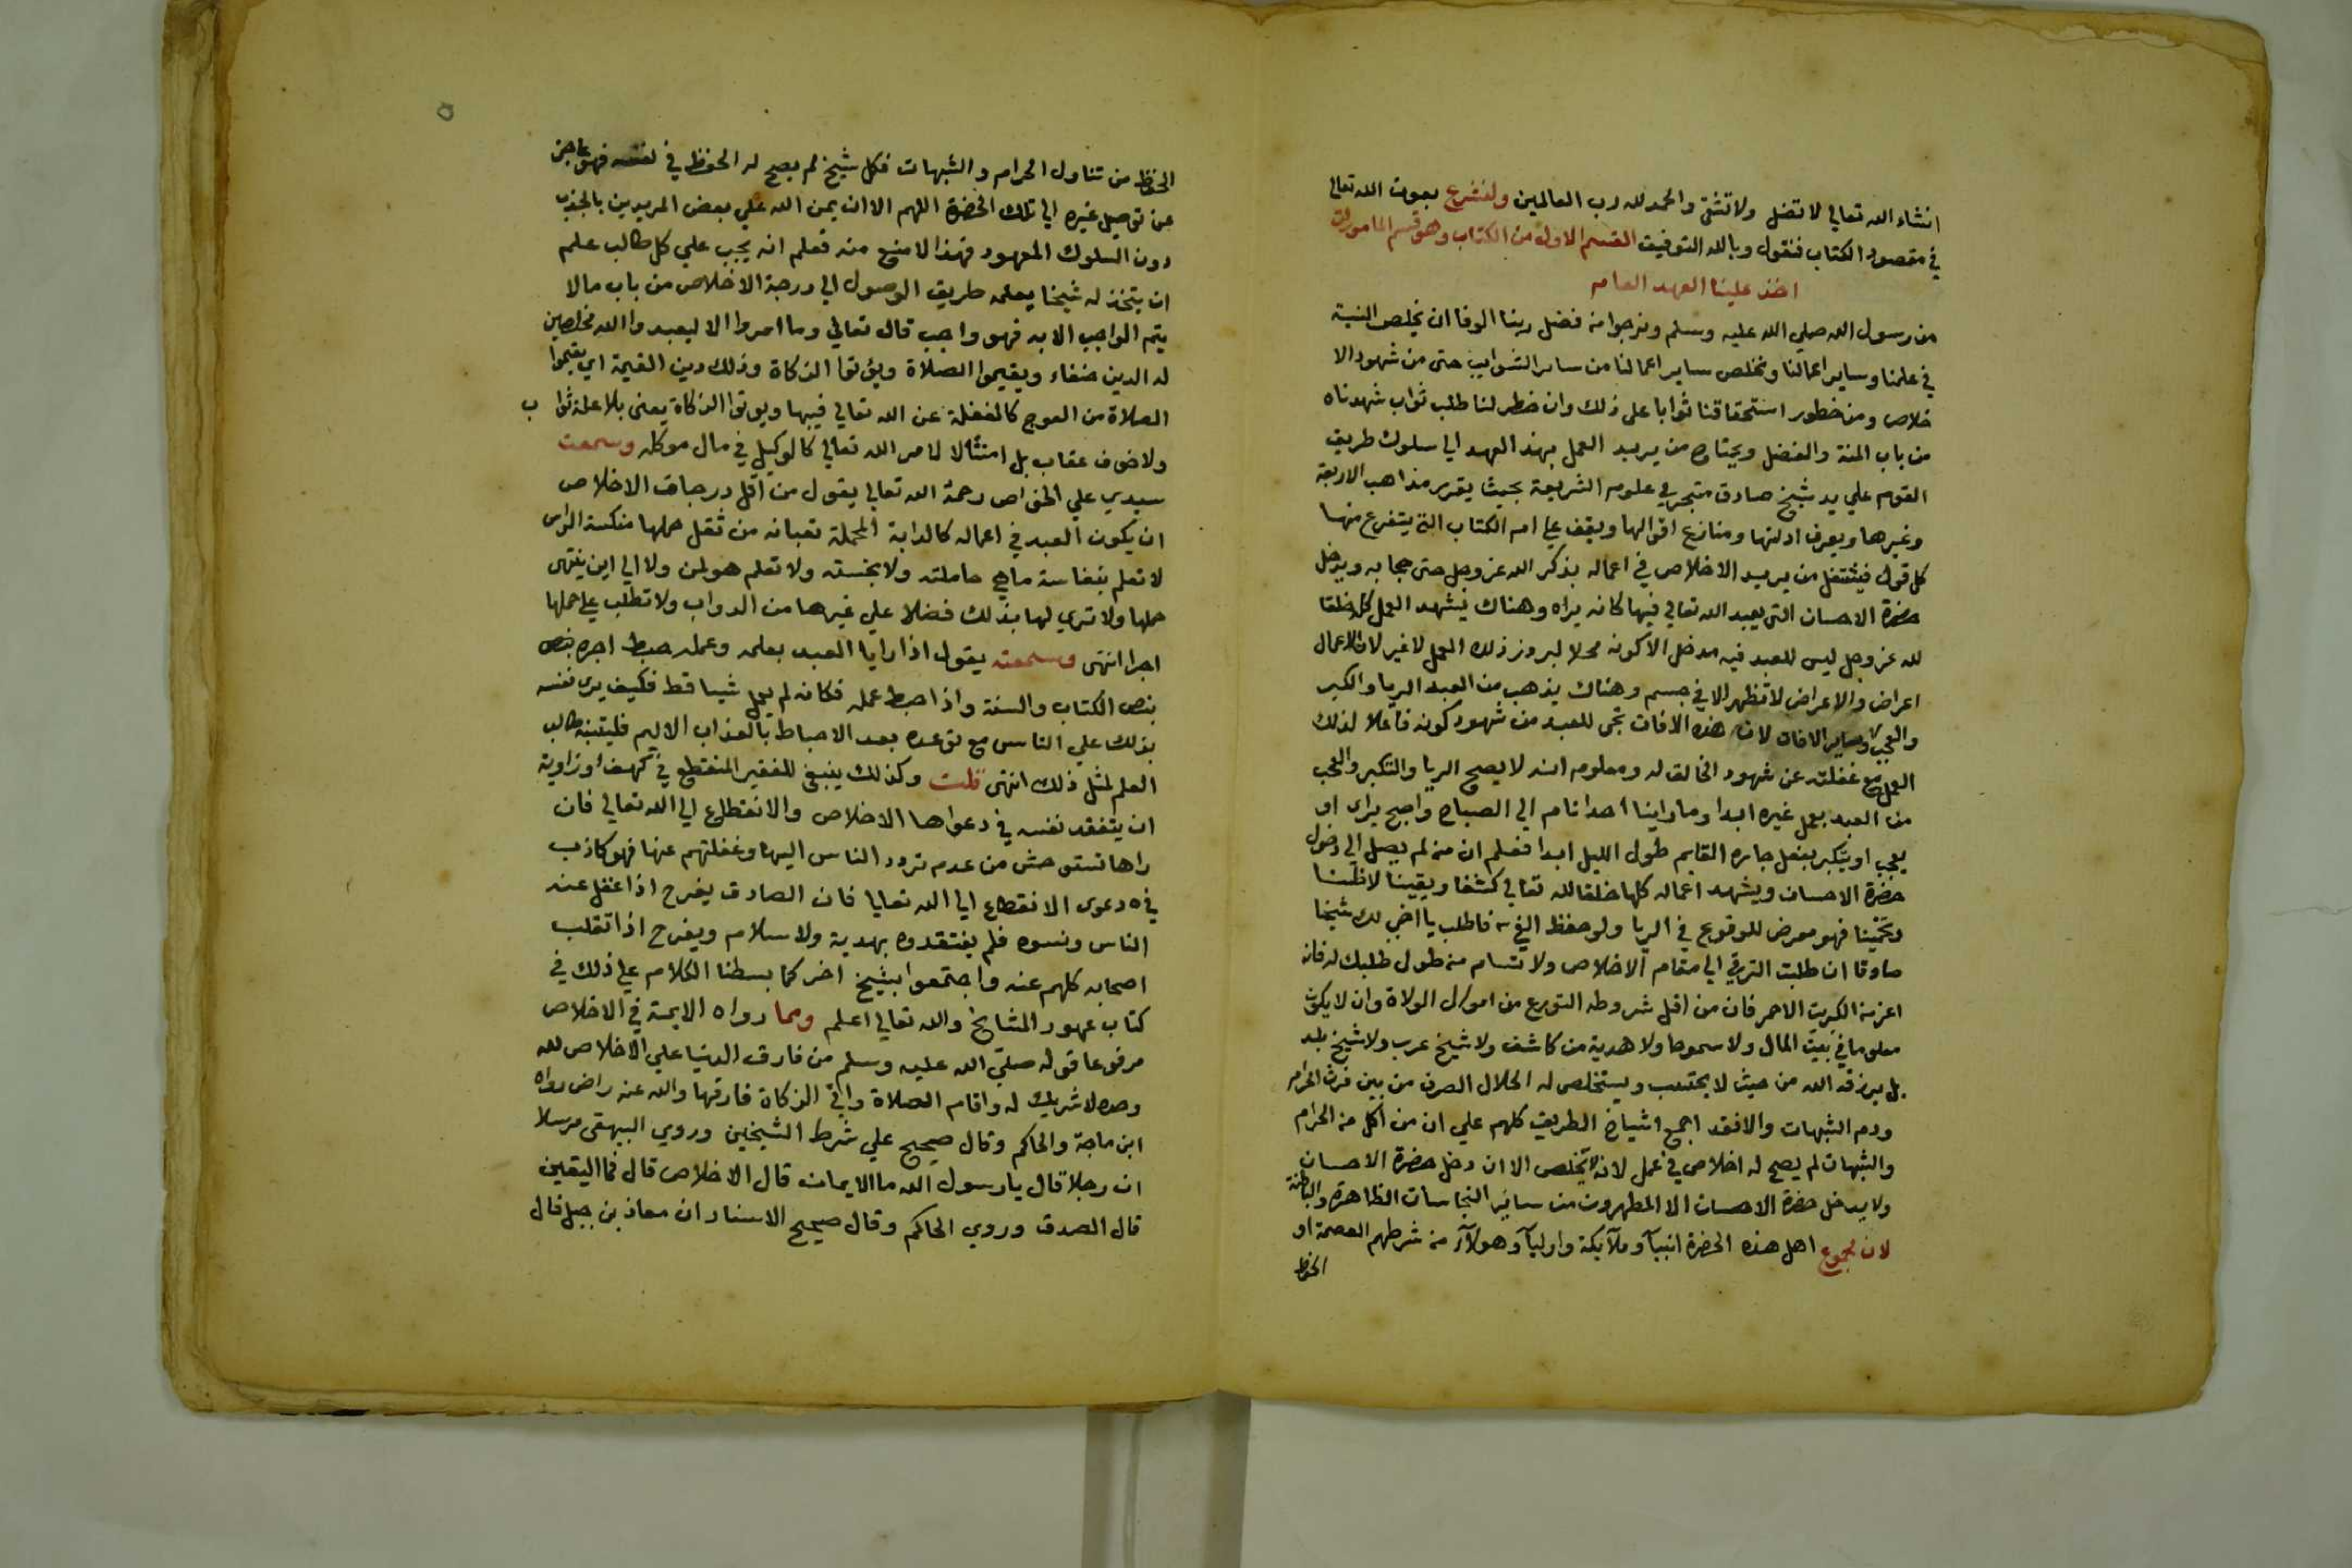 انشاء الله تعالي لا تضل ولا تشقى والحمد لله رب العالمين ولنشرع بعون الله تعالى
في مقصود الكتاب فنقول وبالله التوفيق القسم الاول من الكتاب وهو قسم المامورات
اخذ علينا العهد العام
من رسول الله صلي الله عليه وسلم ونرجوا من فضل ربنا الوفا ان نخلص النية
في علمنا وساير اعمالنا ونخلص ساير اعمالنا من ساير الشوايب حتى من شهود الا
خلاص ومن خطور استحقاقنا ثوابا على ذلك وان خطر لنا طلب ثواب شهدناه
من باب المنة والفضل ويحتاج من يريد العمل بهذا العهد الي سلوك طريق
القوم علي يد شيخ صادق متبحر في علوم الشريعة بحيث يقرر مذاهب الاربعة
وغيرها ويعرف ادلتها ومنازع اقوالها ويقف علي ام الكتاب التي يتفرع منها
كل قول فيشتغل من يريد الاخلاص في اعماله بذكر الله عز وجل حتى حجابه ويدخل
حضرة الاحسان التي يعبد الله تعالي فيها كانه يراه وهناك يشهد العمل كله خلقا
لله عز وجل ليس للعبد فيه مدخل الا كونه محلا لبروز ذلك العمل لا غير لان الاعمال
اعراض والاعراض لا تظهر الا في جسم وهناك يذهب من العبد الريا والكبر
والعجب وساير الافات لان هذه الافات تجى للعبد من شهود كونه فاعلا لذلك
العمل مع غفلته عن شهود الخالق له ومعلوم انه لا يصح الريا والتكبر والعجب
من العبد بعمل غيره ابدا وما راينا احدا نام الي الصباح واصبح يراى او
يعجب او يتكبر بفعل جاره القايم طول الليل ابدا فعلم ان من لم يصل الي دخول
حضرة الاحسان ويشهد اعماله كلها خلقا لله تعالي كشفا ويقينا لا ظنا
وتخمينا فهو معرض للوقوع في الريا ولو حفظ الفي فاطلب يا اخي لك شيخا
صادقا ان طلبت الترقي الي مقام الاخلاص ولا تسام من طول طلبك له فانه
اعز من الكبريت الاحمر فان من اقل شروطه التورع من اموال الولاة وان لا يكون
معلوما في بيت المال ولا سموحا ولا هدية من كاشف ولا شيخ عرب ولا شيخ بلد
بل يرزقه الله من حيث لا يحتسب ويستخلص له الحلال الصرف من بين فرث الحرام
ودم الشبهات والا فقد اجمع اشياخ الطريق كلهم علي ان من اكل من الحرام
والشبهات لم يصح له اخلاص في عمل لانه لا يخلص الا ان دخل حضرة الاحسان
ولا يدخل حضرة الاحسان الا المطهرون من ساير النجاسات الظاهرة والباطنة
لان مجموع اهل هذه الحضرة انبيآ وملآيكة واوليآ وهولآء من شرطهم العصمة او
الحفظ
الحفظ من تناول الحرام والشبهات فكل شيخ لم يصح له الحفظ في نفسه فهو عاجز
عن توصيل غيره الي تلك الحضرة اللهم الا ان يمن الله علي بعض المريدين بالجذب
دون السلوك المعهود فهذا لا منع منه فعلم انه يجب علي كل طالب علم
ان يتخذ له شيخا يعلمه طريق الوصول الي درجة الاخلاص من باب مالا
يتم الواجب الا به فهو واجب قال تعالي وما امروا الا ليعبدوا الله مخلصين
له الدين حنفاء ويقيموا الصلاة ويؤتوا الزكاة وذلك دين القيمة اي يقيموا
الصلاة من العوج كالغفلة عن الله تعالي فيها ويوتوا الزكاة يعنى بلا علة ثوا ب
ولا خوف عقاب بل امتثالا لامر الله تعالي كالوكيل في مال موكله وسمعت
سيدي علي الخواص رحمه الله تعالي يقول من اقل درجات الاخلاص
ان يكون العبد في اعماله كالدابة المحملة تعبانه من ثقل حملها منكسة الراس
لا تعلم بنفاسة ما هي حاملته ولا بخسته ولا تعلم هو لمن ولا الي اين ينتهى
حملها ولا تري لها بذلك فضلا علي غيرها من الدواب ولا تطلب علي حملها
اجرا انتهى وسمعته يقول اذا رايا العبد بعلمه وعمله حبط اجره بنص
بنص الكتاب والسنة واذا حبط عمله فكانه لم يعمل شيا قط فكيف يرى نفسه
بذلك علي الناس مع توعده بعد الاحباط بالعذاب الاليم فليتنبه طالب
العلم لمثل ذلك انتهى قلت وكذلك ينبغي للفقير المنقطع في كهف او زاوية
ان يتفقد نفسه في دعواها الاخلاص والانقطاع الي الله تعالي فان
راها تستوحش من عدم تردد الناس اليها وغفلتهم عنها فهو كاذب
في دعوى الانقطاع الي الله تعالي فان الصادق يفرح اذا غفل عنه
الناس ونسوه فلم يفتقدوه بهدية ولا سلام ويفرح اذا تقلب
اصحابه كلهم عنه واجتمعوا بشيخ اخر كما بسطنا الكلام علي ذلك في
كتاب عهود المشايخ والله تعالي اعلم ومما رواه الايمة في الاخلاص
مرفوعا قوله صلي الله عليه وسلم من فارق الدنيا علي الاخلاص لله
وحده لا شريك له واقام الصلاة واتي الزكاة فارقها والله عنه راض رواه
ابن ماجة والحاكم وقال صحيح علي شرط الشيخين وروي البيهقى مرسلا
ان رجلا قال يا رسول الله ما الايمان قال الاخلاص قال فما اليقين
قال الصدق وروي الحاكم وقال صحيح الاسناد ان معاذ بن جبل قال